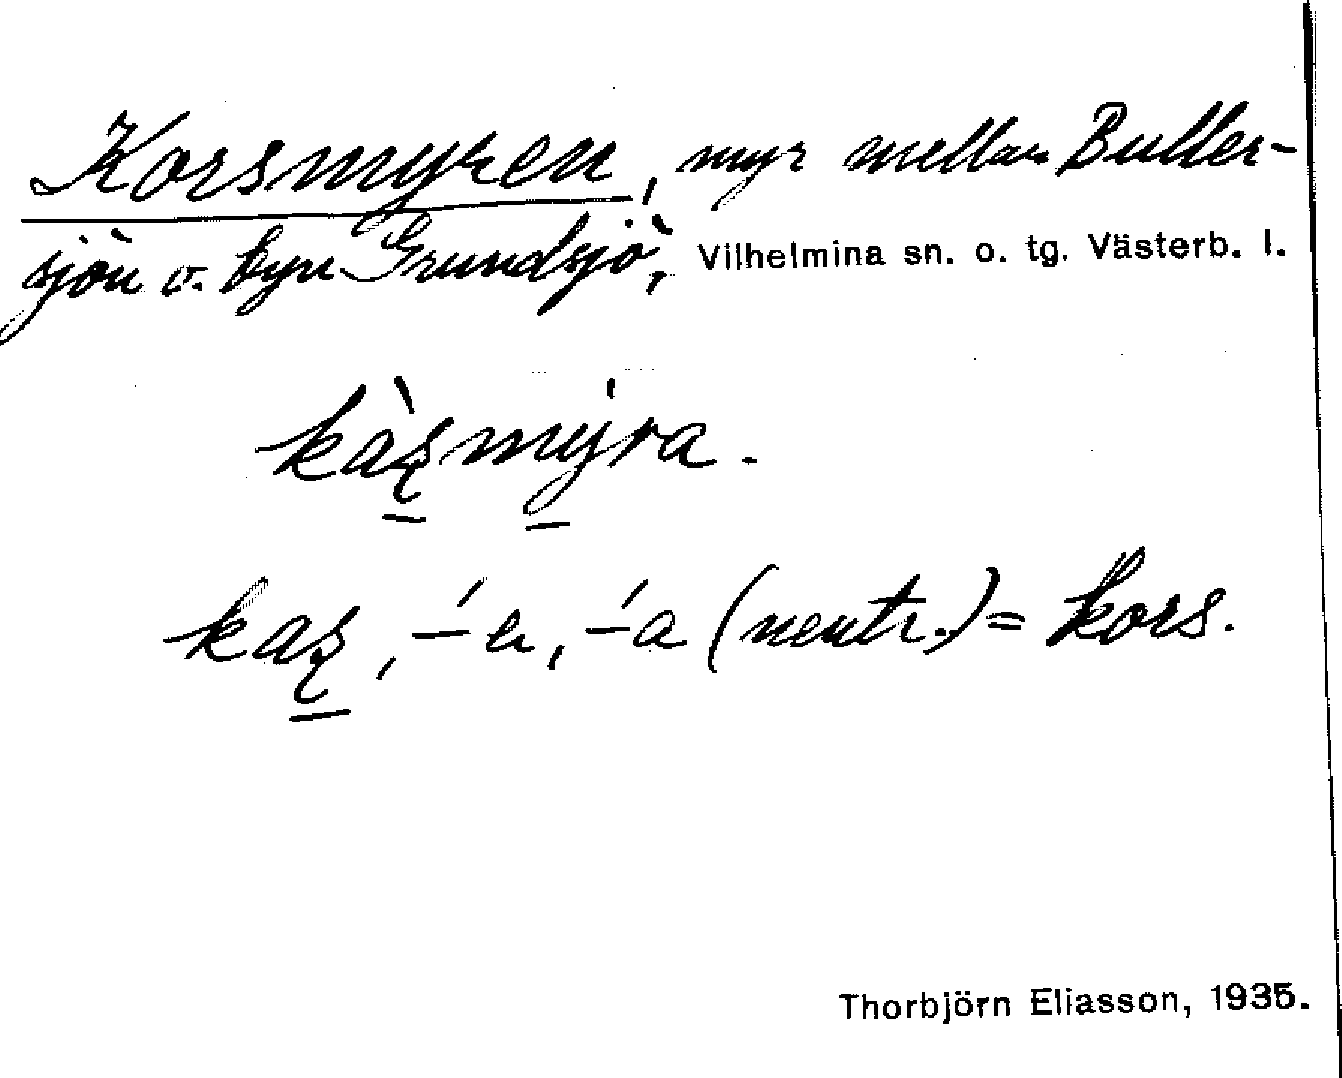 Korsmyren, myr mellan Buller-
sjön o. byn Grundsjö, Vilhelmina sn. o. tg. Västerb. l.
kàʂmýra.
kaʂ, -́n, -́a (neutr.) = kors.
Thorbjörn Eliasson, 1935.